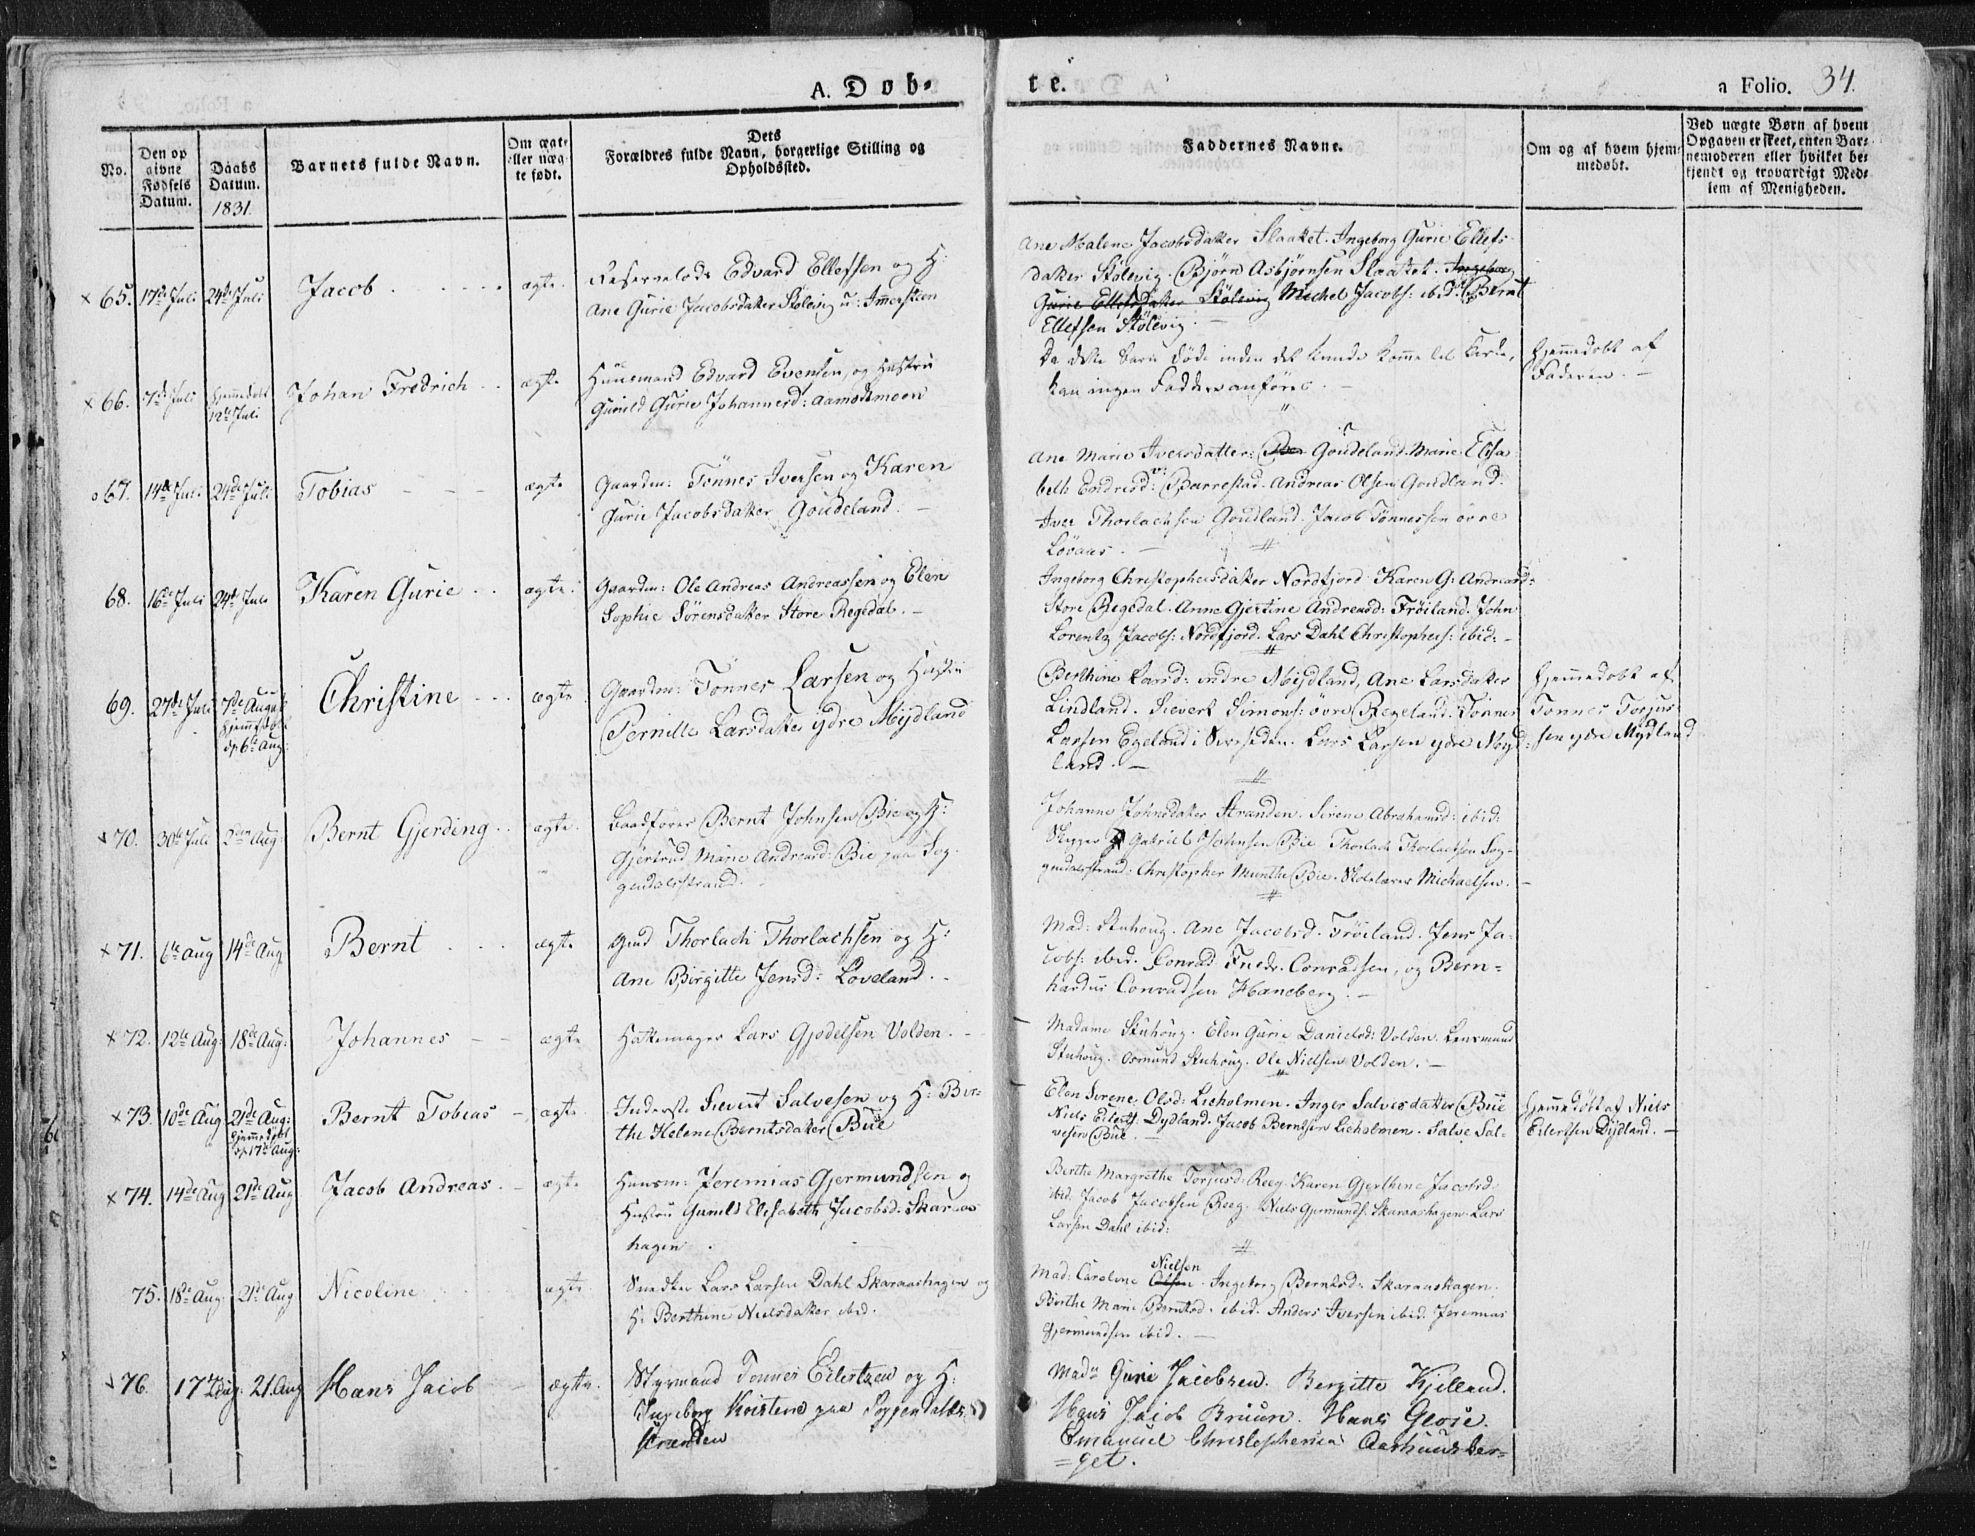 A. Døb-
te.
a Folio. 34.
No.
Den op
givne
Fødsels
Datum.
Daabs
Datum.
1831.
Barnets fulde Navn.
Om ægte
eller uæg-
te født.
Dets
Forældres fulde Navn, borgerlige Stilling og
Opholdssted.
Faddernes Navne.
Om og af hvem hjem-
medøbt.
Ved uægte Børn af hvem
Opgaven er skeet, enten Bar-
nemoderen eller hvilket be-
kjendt og troværdigt Med-
lem af Menigheden.
× 65. 17de Juli 24de Juli Jacob ægte.
Edvard Ellefsen og H:
Ane Gurie Jacobsdatter Stølevig
Ane Malene Jacobsdatter Slaaket. Ingeborg Gurie Ellefs-
datter Stølevig. Bjørn Asbjørnsen Slaaket. Ingeborg
Gurie Ellefsdatter Stølevig Michel Jacobs: ibid: Bernt
Ellefsen Stølevig.
× 66. 7de Juli hjemmedøbt
12te Juli
Johan Fredrich ægte
Huusmand Edvard Evensen, og Hustru
Gunild Gurie Johannesd: Aamodtmoen
Da dette barn døde inden det kunde komme til Kirke,
kan ingen Faddere anføres.
hjemmedøbt af
Faderen.
67. 14de Juli 24de Juli Tobias ægte
Gaardm: Tønnes Iversen og Karen
Gurie Jacobsdatter Goudeland.
Ane Marie Iversdatter: Goudeland. Marie Elisa-
beth Endresd: Barrestad. Andreas Olsen Goudland.
Iver Thorlachsen Goudland. Jacob Tønnessen øvre
Løvaas.
68. 16de Juli 24de Juli Karen Gurie ægte.
Gaardm: Ole Andreas Andreassen og Elen
Sophie Sørensdatter Store Regedal.
Ingeborg Christophersdatter Nordfjord Karen G: Andreasd:
Store Regedal. Anne Gjertine Andreasd: Frøiland. John
Lorentz Jacobs: Nordfjord. Lars Dahl Christophers: ibid:
69. 27de Juli 7de August
hjemmedøbt
d: 6te Aug:
Christine ægte
Gaardm: Tønnes Larsen og Hustru
Pernille Larsdatter ydre Mydland
Berthine Larsd: indre Mydland, Ane Larsdatter
Lindland. Sievert Simons: øvre Regeland. Tønnes
Larsen Egeland i Lars Larsen ydre Myd-
land.
hjemmedøbt af
Tønnes Torjus-
sen ydre Mydland
70. 30te Juli Aug: Bernt Gjerding ægte.
Baadfører Bernt Johnsen Bie og H:
Gjertrud Marie Andreasd: Bie paa Sog-
gendalsstrand.
Johanne Johnsdatter Stranden. Sirene Abrahamsd: ibid:
Skipper Gabriel Johnsen Bie Thorlach Thorlachsen Sog-
gendalsstrand: Christopher Munthe Bie. Skolelærer Michaelsen.
× 71. 6te Aug 14de Aug Bernt ægte
Thorlach Thorlachsen og H:
Ane Birgitte Jensd: Løveland.
Mad: Stuhoug. Ane Jacobsd: Frøiland. Jens Ja-
cobs: ibid. Conrad Fredr. Conradsen, og Bern-
hardus Conradsen Haneberg.
× 72. 12te Aug: 18de Aug: Johannes ægte
Hattemager Lars Gjødelsen Volden.
Madame Stuhoug. Elen Gurie Danielsd: Volden. Lensmand
Stuhoug. Osmund Stuhoug. Ole Nielsen Volden.
× 73. 10de Aug 21de Aug:
hjemmedøbt
d: 17de Aug:
Bernt Tobias ægte
Inderste Sievert Salvesen og H: Ber-
the Helene Berntsdatter Bue
Elen Sirene Olsd: Lieholmen. Inger Salvesdatter Bue
Niels Eilerts. Dydland. Jacob Berntsen Lieholmen. Salve Sal-
vesen Bue.
hjemmedøbt af Niels
Eilertsen Dydland.
× 74. 14de Aug 21de Aug Jacob Andreas. ægte
Huusm: Jeremias Gjermundsen og
Hustru Gunild Elisabeth Jacobsd: Skaraas-
hagen
Berthe Margrethe Torjusd: Reeg. Karen Gjerthine Jacobsd:
ibid. Jacob Jacobsen Reeg. Niels Gjermunds. Skaraashagen. Lars
Larsen Dahl ibid:
75. 18de Aug: 21de Aug Nicoline ægte
Snedker Lars Larsen Dahl Skaraashagen og
H: Berthine Nielsdatter ibid.
Nielsen
Mad: Caroline Olsen. Ingeborg Berntsd: Skaraashagen.
Birthe Marie Berntsd. ibid. Anders Iversen ibid. Jeremias
Gjermundsen ibid.
76. 17de Aug: 21. Aug Hans Jacob ægte.
Styrmand Tønnes Eilertzen og H:
Ingeborg Kirstine paa Soggendahls-
stranden
Made Gurie Jacobsen. Bergitte Kjelland.
Hans Jacob Bruun. Hans Geose.
Emanuel Christophersen Aarhuusber-
=get.